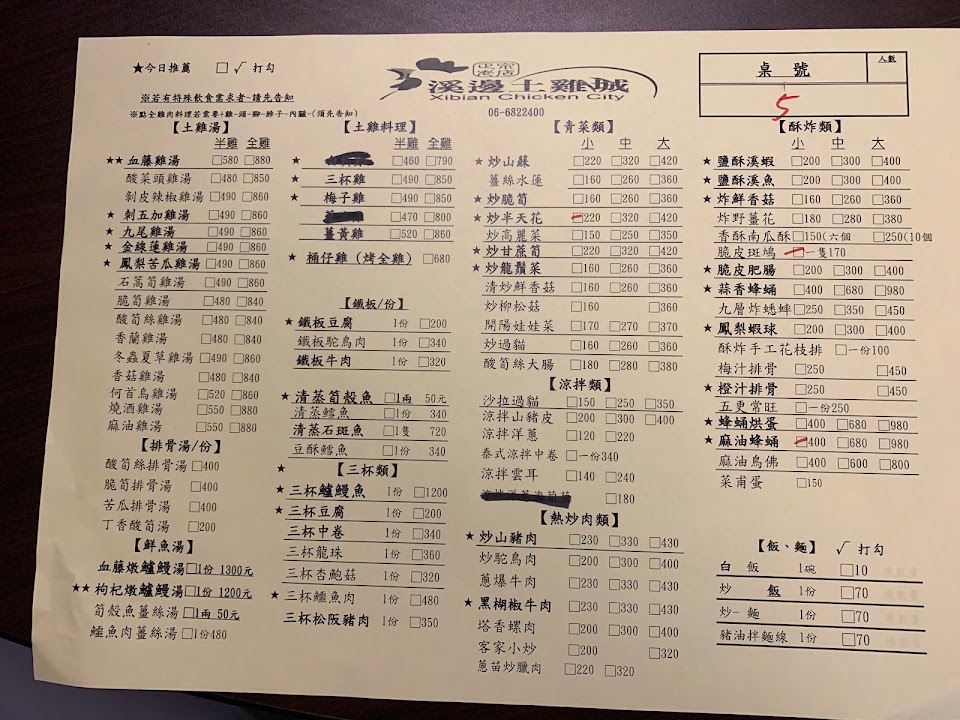 ★今日推薦 □ √ 打勾
正宗
老店
溪邊土雞城
Xibian Chicken City
06-6822400
桌號
人數
5
※若有特殊飲食需求者~請先告知
※點全雞肉料理若需要+雞-頭-腳-脖子-內臟-(須先告知)
【土雞湯】
半雞 全雞
★★血藤雞湯 □580 □880
酸菜頭雞湯 □480 □850
剝皮辣椒雞湯 □490 □860
★刺五加雞湯 □490 □860
★九尾雞湯 □490 □860
★金線蓮雞湯 □490 □860
★鳳梨苦瓜雞湯 □490 □860
石蒿筍雞湯 □490 □860
脆筍雞湯 □480 □840
酸筍絲雞湯 □480 □840
香蘭雞湯 □480 □840
冬蟲夏草雞湯 □490 □860
香菇雞湯 □480 □840
何首烏雞湯 □520 □860
燒酒雞湯 □550 □880
麻油雞湯 □550 □880
【排骨湯/份】
酸筍絲排骨湯 □400
脆筍排骨湯 □400
苦瓜排骨湯 □400
丁香酸筍湯 □200
【鮮魚湯】
血藤燉鱸鰻湯□1份 1300元
★★枸杞燉鱸鰻湯□1份 1200元
筍殼魚薑絲湯□1兩 50元
鱷魚肉薑絲湯□1份480
【土雞料理】
半雞 全雞
★ □460 □790
★ 三杯雞 □490 □850
★ 梅子雞 □490 □850
□470 □800
薑黃雞 □520 □860
★ 桶仔雞 (烤全雞) □680
【鐵板/份】
★鐵板豆腐 1份 □200
鐵板駝鳥肉 1份 □340
鐵板牛肉 1份 □320
★清蒸筍殼魚 □1兩 50元
清蒸鱈魚 □1份 340
清蒸石斑魚 □1隻 720
豆酥鱈魚 □1份 340
★ 【三杯類】
★三杯鱸鰻魚 1份 □1200
★三杯豆腐 1份 □200
三杯中卷 1份 □340
三杯龍珠 1份 □360
三杯杏鮑菇 1份 □320
★三杯鱷魚肉 1份 □480
三杯松阪豬肉 1份 □350
【青菜類】
小 中 大
★炒山蘇 □220 □320 □420
薑絲水蓮 □160 □260 □360
★炒脆筍 □160 □260 □360
★炒半天花 □220 □320 □420
炒高麗菜 □150 □250 □350
★炒甘蔗筍 □220 □320 □420
★炒龍鬚菜 □160 □260 □360
清炒鮮香菇 □160 □260 □360
炒柳松菇 □160 □360
開陽娃娃菜 □170 □270 □370
炒過貓 □160 □260 □360
酸筍絲大腸 □180 □280 □380
【涼拌類】
沙拉過貓 □150 □250 □350
涼拌山豬皮 □200 □300 □400
涼拌洋蔥 □120 □220
泰式涼拌中卷 □一份340
涼拌雲耳 □140 □240
□180
【熱炒肉類】
★炒山豬肉 □230 □330 □430
炒駝鳥肉 □200 □300 □400
蔥爆牛肉 □230 □330 □430
★黑楜椒牛肉 □230 □330 □430
塔香螺肉 □200 □300 □400
客家小炒 □200 □320
蔥苗炒臘肉 □220 □320
【酥炸類】
小 中 大
★鹽酥溪蝦 □200 □300 □400
★鹽酥溪魚 □200 □300 □400
★炸鮮香菇 □160 □260 □360
炸野薑花 □180 □280 □380
香酥南瓜酥 □150(六個 □250(10個
脆皮斑鳩 □一隻170
★脆皮肥腸 □200 □300 □400
★蒜香蜂蛹 □400 □680 □980
九層炸蟋蟀□250 □350 □450
★鳳梨蝦球 □200 □300 □400
酥炸手工花枝排 □一份100
梅汁排骨 □250 □450
★橙汁排骨 □250 □450
五更常旺 □一份250
★蜂蛹烘蛋 □400 □680 □980
★麻油蜂蛹 □400 □680 □980
麻油鳥佛 □400 □600 □800
菜甫蛋 □150
【飯、麵】 √ 打勾
白 飯 1碗 □10
炒 飯 1份 □70
炒-麵 1份 □70
豬油拌麵線 1份 □70